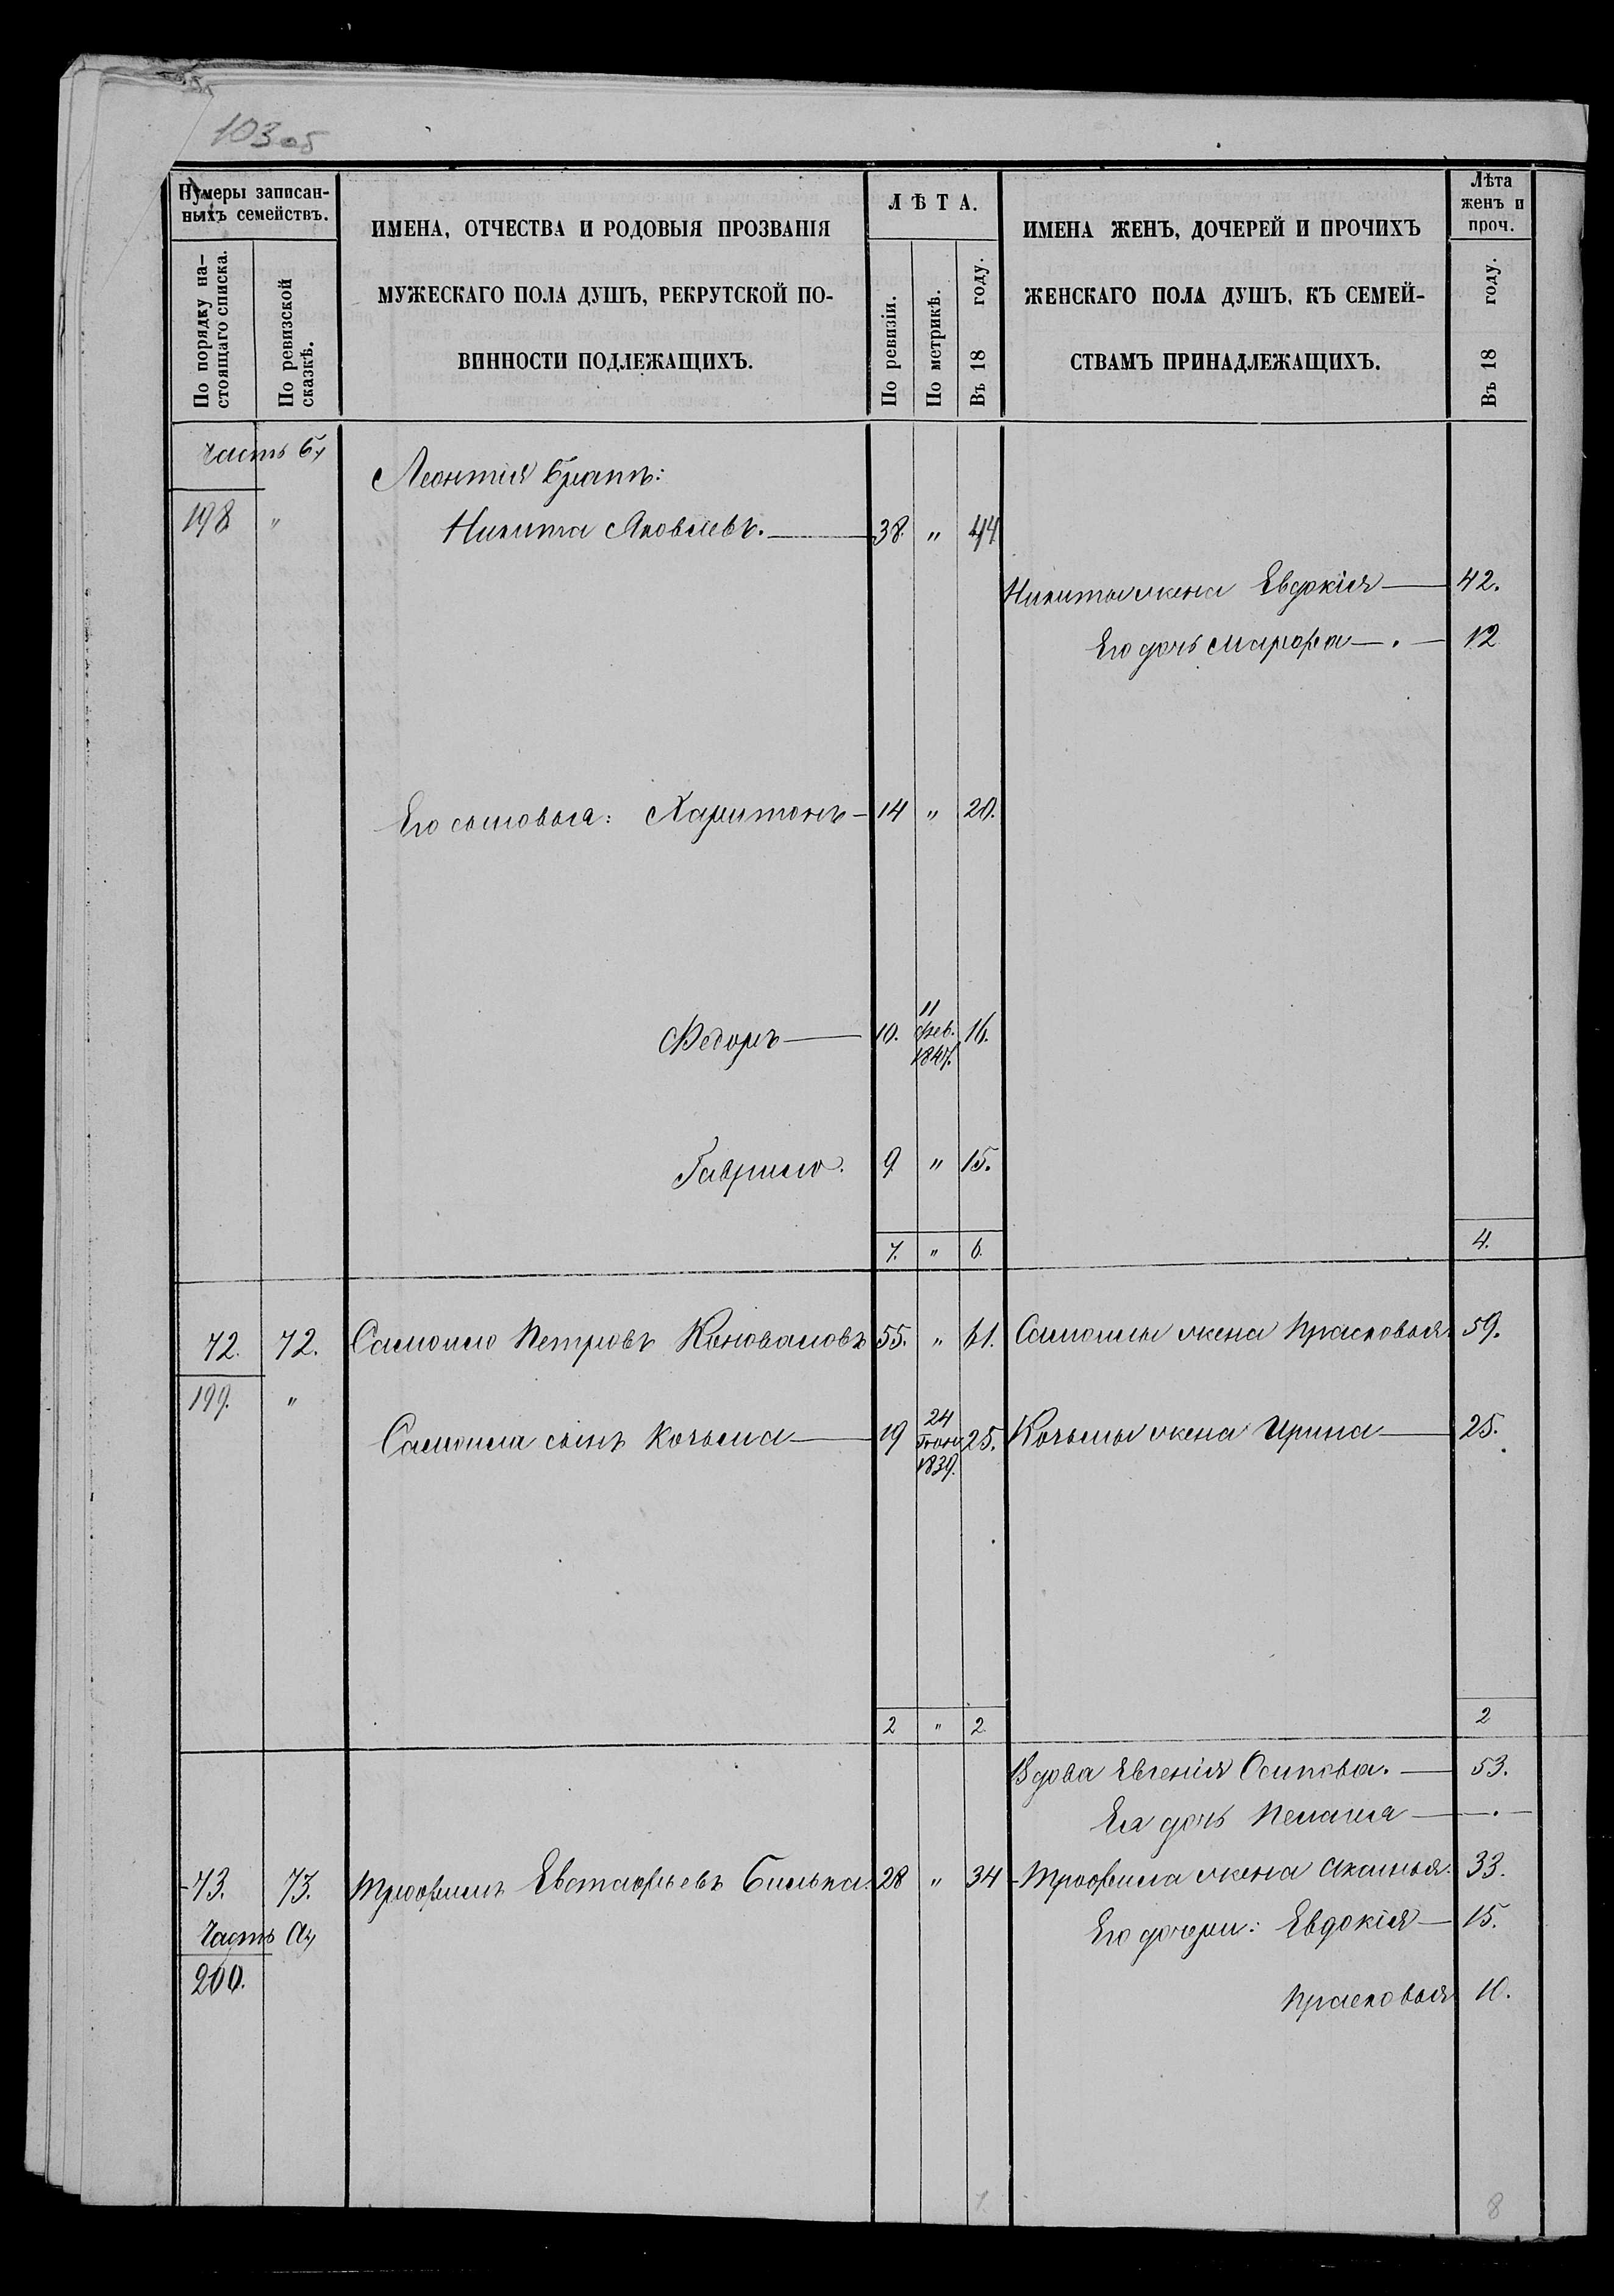 103 об
Нумеры записан-
ныхъ семействъ.
По порядку на-
стоящаго списка.
По ревизской
сказкѣ.
ИМЕНА, ОТЧЕСТВА И РОДОВЫЯ ПРОЗВАНІЯ
МУЖЕСКАГО ПОЛА ДУШЪ, РЕКРУТСКОЙ ПО-
ВИННОСТИ ПОДЛЕЖАЩИХЪ.
ЛѢТА.
По ревизіи.
По метрикѣ.
Въ 18 году.
ИМЕНА ЖЕНЪ, ДОЧЕРЕЙ И ПРОЧИХЪ
ЖЕНСКАГО ПОЛА ДУШЪ, КЪ СЕМЕЙ-
СТВАМЪ ПРИНАДЛЕЖАЩИХЪ.
Лѣта
женъ и
проч.
Въ 18 году.
Часть б,
Леонтія братъ:
198 " Никита Яковлевъ. 38. " 44
Никиты жена Евдокія 42.
Его дочь Марфа 12
Его сыновья: Харитонъ 14 " 20.
Федоръ 10. 11 Фев. 1847. 16.
Гаврило. 9 " 15.
7. " 6. 4.
72. 72. Самоило Петровъ Коноваловъ 55. " 61. Самоилы жена Прасковья 59.
199. "
Самоила сынъ Козьма 19 24 Іюня 1839. 25. Козьмы жена Ирина 25.
2 " 2 2
Вдова Евгенія Осипова. 53.
Ея дочь Пелагея
73. 73. Трофимъ Евстафьевъ 28 " 34 Трофима жена Акилина 33.
Часть а, Его дочери: Евдокія 15.
200.
Прасковья 10.
1. 8